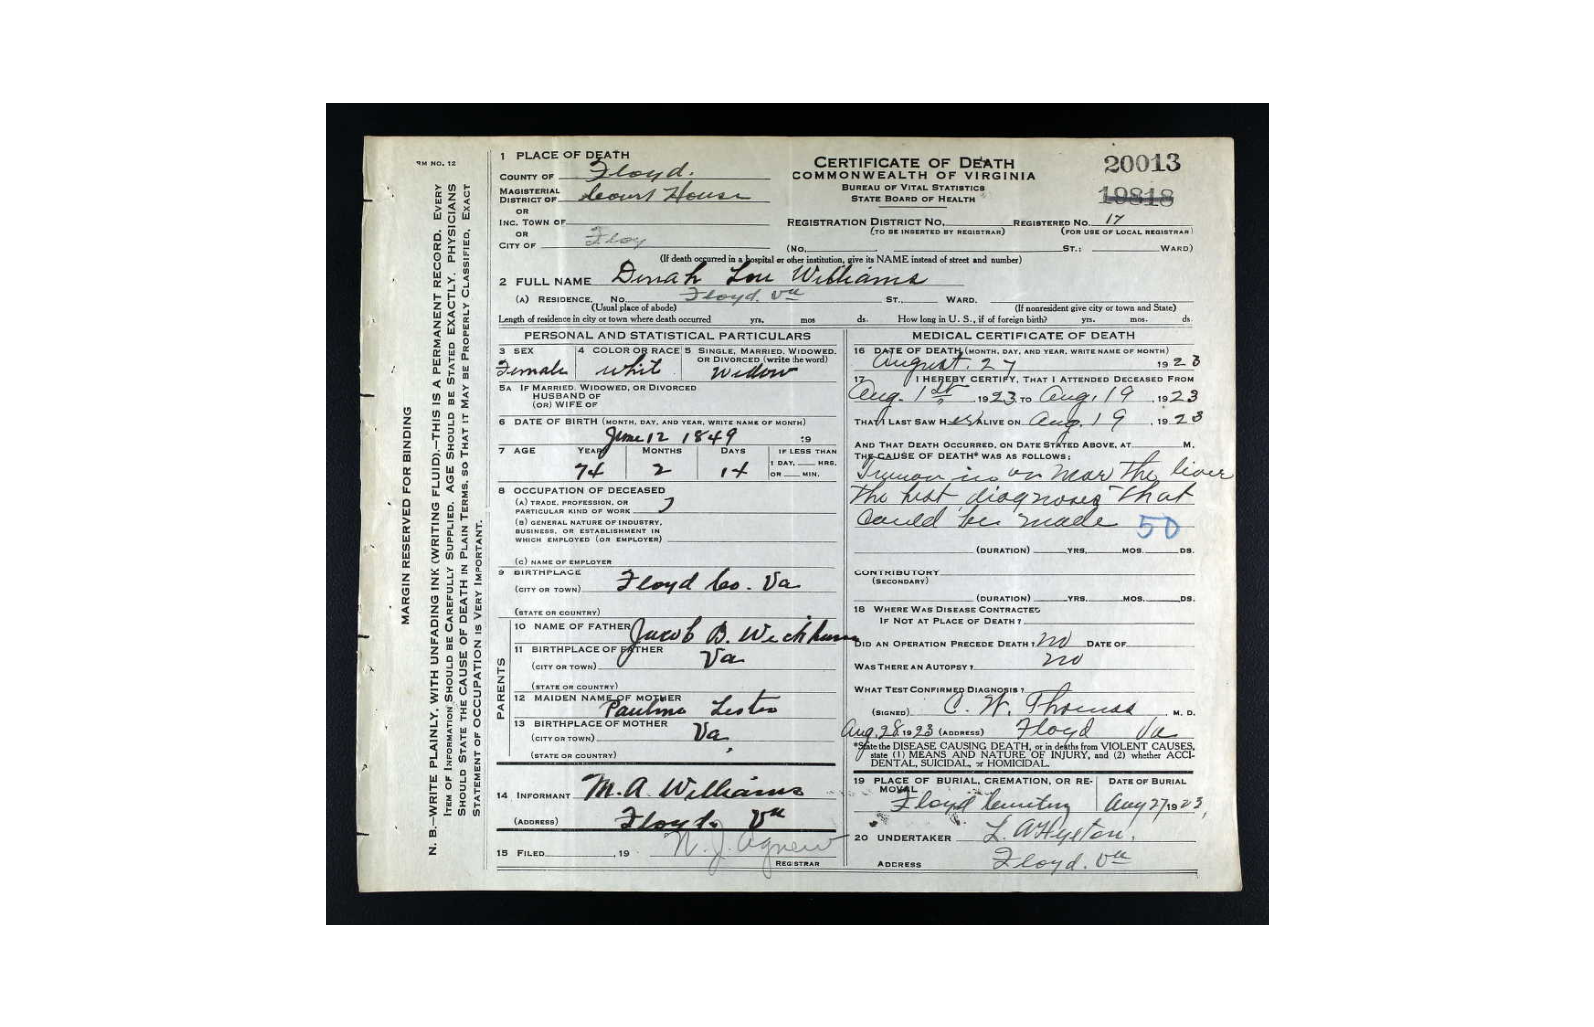 RM NO. 12
MARGIN RESERVED FOR BINDING
N. B.—WRITE PLAINLY, WITH UNFADING INK (WRITING FLUID).—THIS IS A PERMANENT RECORD. EVERY
ITEM OF INFORMATION SHOULD BE CAREFULLY SUPPLIED. AGE SHOULD BE STATED EXACTLY. PHYSICIANS
SHOULD STATE THE CAUSE OF DEATH IN PLAIN TERMS, SO THAT IT MAY BE PROPERLY CLASSIFIED. EXACT
STATEMENT OF OCCUPATION IS VERY IMPORTANT.
1 PLACE OF DEATH
COUNTY OF Floyd.
MAGISTERIAL
DISTRICT OF Court House
OR
INC. TOWN OF
OR
CITY OF Floy
CERTIFICATE OF DEATH
COMMONWEALTH OF VIRGINIA
BUREAU OF VITAL STATISTICS
STATE BOARD OF HEALTH
20013
19818
REGISTRATION DISTRICT NO. REGISTERED NO. 17
(TO BE INSERTED BY REGISTRAR) (FOR USE OF LOCAL REGISTRAR)
(NO. ST.; WARD)
(If death occurred in a hospital or other institution, give its NAME instead of street and number)
2 FULL NAME Dinah Lou Williams
(A) RESIDENCE. No. Floyd. Va ST., WARD.
(Usual place of abode) (If nonresident give city or town and State)
Length of residence in city or town where death occurred yrs. mos ds. How long in U. S., if of foreign birth? yrs. mos. ds.
PERSONAL AND STATISTICAL PARTICULARS
3 SEX 4 COLOR OR RACE 5 SINGLE, MARRIED, WIDOWED,
OR DIVORCED (write the word)
Female White Widow
5A IF MARRIED, WIDOWED, OR DIVORCED
HUSBAND OF
(OR) WIFE OF
6 DATE OF BIRTH (MONTH, DAY, AND YEAR, WRITE NAME OF MONTH)
June 12 1849 19
7 AGE YEARS MONTHS DAYS IF LESS THAN
1 DAY, HRS.
OR MIN.
74 2 14
8 OCCUPATION OF DECEASED
(A) TRADE, PROFESSION, OR
PARTICULAR KIND OF WORK
(B) GENERAL NATURE OF INDUSTRY,
BUSINESS, OR ESTABLISHMENT IN
WHICH EMPLOYED (OR EMPLOYER)
(C) NAME OF EMPLOYER
9 BIRTHPLACE
(CITY OR TOWN) Floyd Co. Va
(STATE OR COUNTRY)
PARENTS
10 NAME OF FATHER Jacob B. Wickham
11 BIRTHPLACE OF FATHER
(CITY OR TOWN) Va
(STATE OR COUNTRY)
12 MAIDEN NAME OF MOTHER
Paulina Lester
13 BIRTHPLACE OF MOTHER
(CITY OR TOWN) Va
(STATE OR COUNTRY)
14 INFORMANT M. A. Williams
(ADDRESS) Floyd. Va
15 FILED , 19 N. J. Agnew
REGISTRAR
MEDICAL CERTIFICATE OF DEATH
16 DATE OF DEATH (MONTH, DAY, AND YEAR, WRITE NAME OF MONTH)
August. 27 1923
17 I HEREBY CERTIFY, THAT I ATTENDED DECEASED FROM
Aug. 1st, 1923 TO Aug. 19, 1923
THAT I LAST SAW HER ALIVE ON Aug. 19, 1923
AND THAT DEATH OCCURRED, ON DATE STATED ABOVE, AT M.
THE CAUSE OF DEATH* WAS AS FOLLOWS:
Tumor in or near the liver
The best diagnosis that
could be made 50
(DURATION) YRS. MOS. DS.
CONTRIBUTORY
(SECONDARY)
(DURATION) YRS. MOS. DS.
18 WHERE WAS DISEASE CONTRACTED
IF NOT AT PLACE OF DEATH?
DID AN OPERATION PRECEDE DEATH? no DATE OF
WAS THERE AN AUTOPSY? no
WHAT TEST CONFIRMED DIAGNOSIS?
(SIGNED) C. W. Thomas M. D.
Aug. 28 1923 (ADDRESS) Floyd Va
*State the DISEASE CAUSING DEATH, or in deaths from VIOLENT CAUSES,
state (1) MEANS AND NATURE OF INJURY, and (2) whether ACCI-
DENTAL, SUICIDAL, or HOMICIDAL.
19 PLACE OF BURIAL, CREMATION, OR RE-
MOVAL DATE OF BURIAL
Floyd Cemetery Aug 27, 1923,
20 UNDERTAKER L. A Hylton.
ADDRESS Floyd. Va